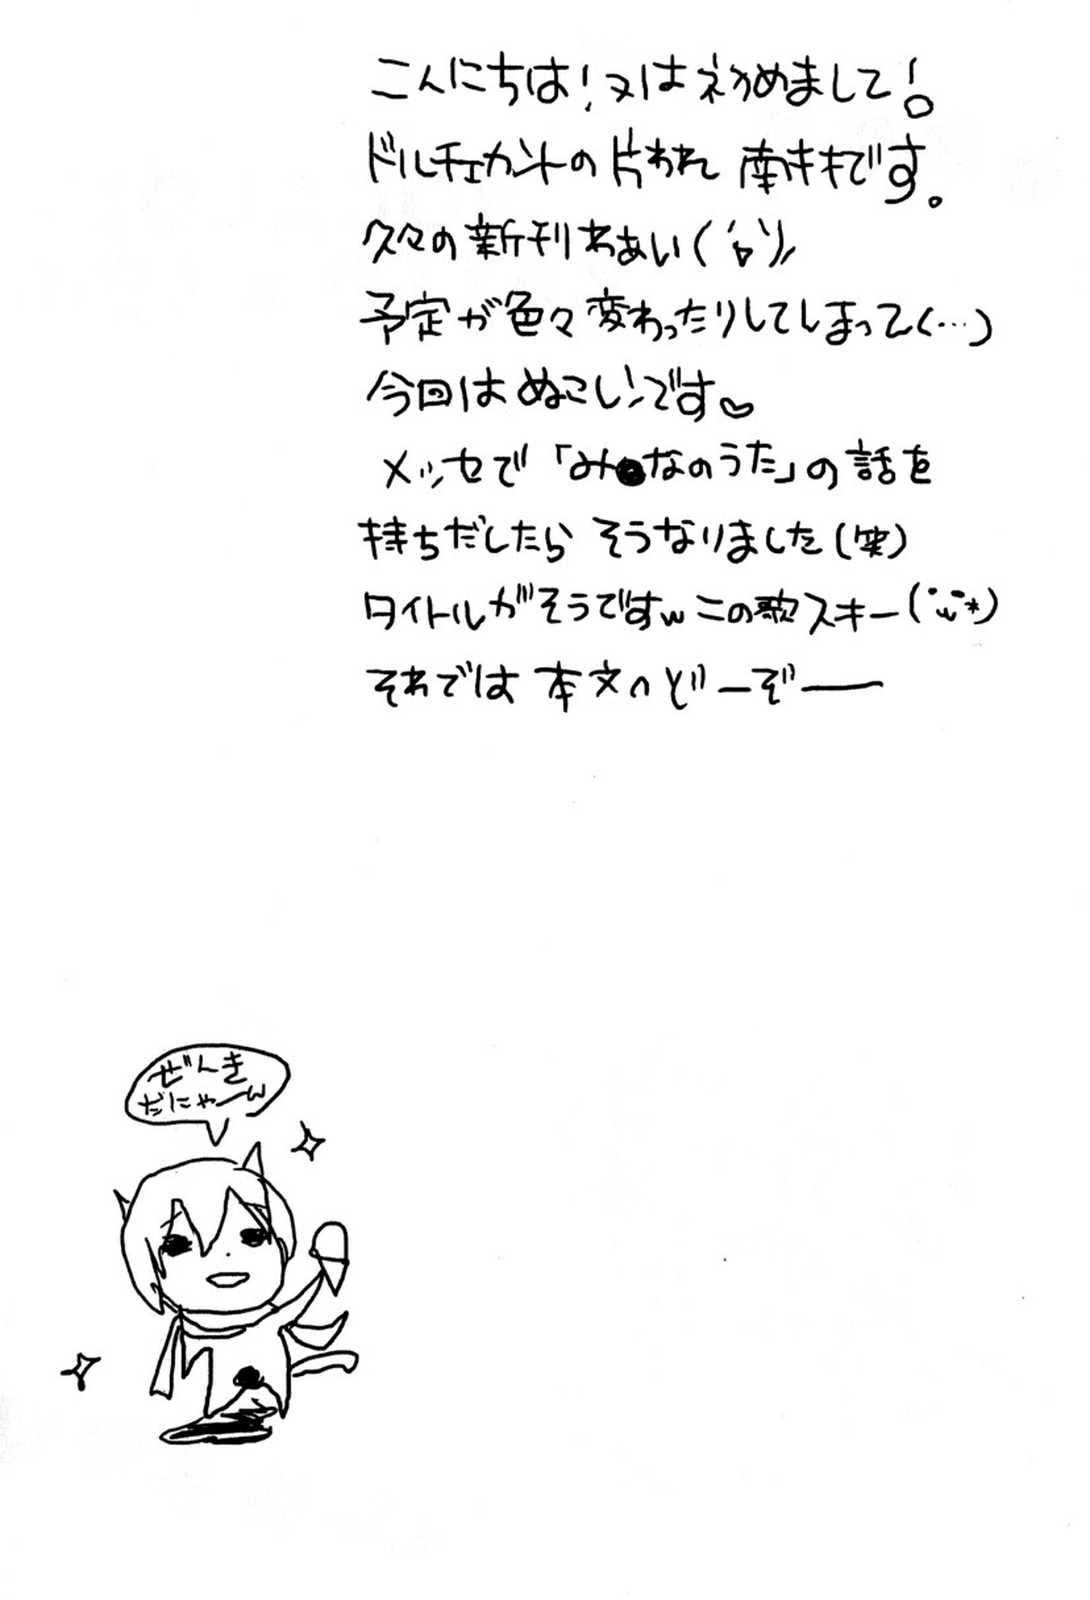 こんにちは!又は初めまして!
ドルチェカントの片われ 南キキです。
久々の新刊わあい( ´ㅂ`)ﾉﾉ
予定が色々変わったりしてしまって(…)
今回はぬこレンです♡
メッセで「み●なのうた」の話を
持ちだしたら そうなりました(笑)
タイトルがそうですw この歌スキー(*¨ω¨*)
それでは 本文へどーぞー
ぜんき
だにゃーw